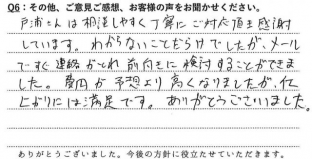 Q6：その他、ご意見ご感想、お客様の声をお聞かせください。
戸浦さんは相談しやすく丁寧にご対応頂き感謝
しています。わからないことだらけでしたが、メール
ですぐ連絡がとれ前向きに検討することができま
した。費用が予想より高くなりましたが、仕
上がりには満足です。ありがとうございました。
ありがとうございました。今後の方針に役立たせていただきます。